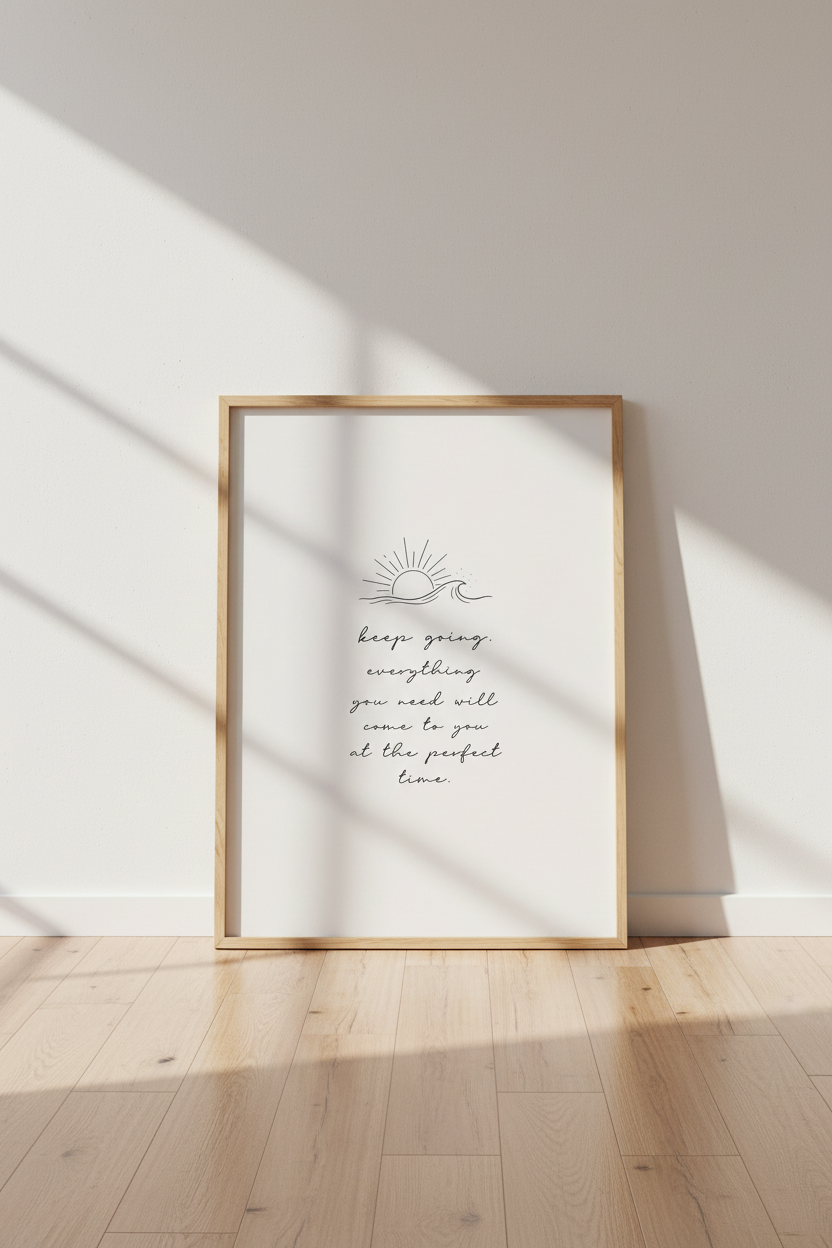 keep going.
everything
you need will
come to you
at the perfect
time.